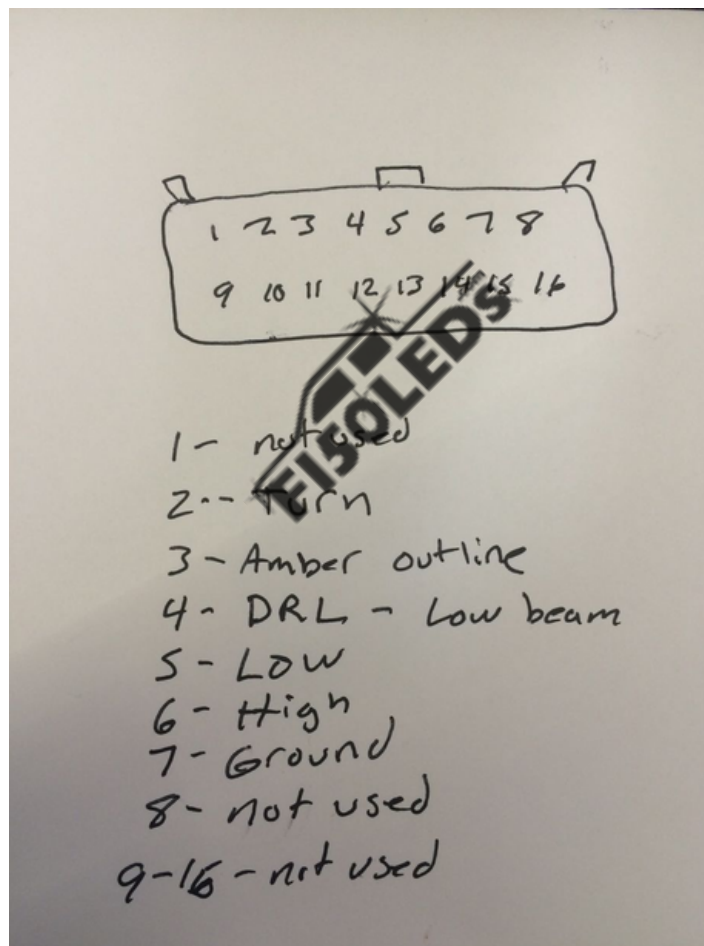 1 2 3 4 5 6 7 8
9 10 11 12 13 14 15 16
F150LEDS
1 - not used
2 - Turn
3 - Amber outline
4 - DRL - Low beam
5 - Low
6 - High
7 - Ground
8 - not used
9-16 - not used